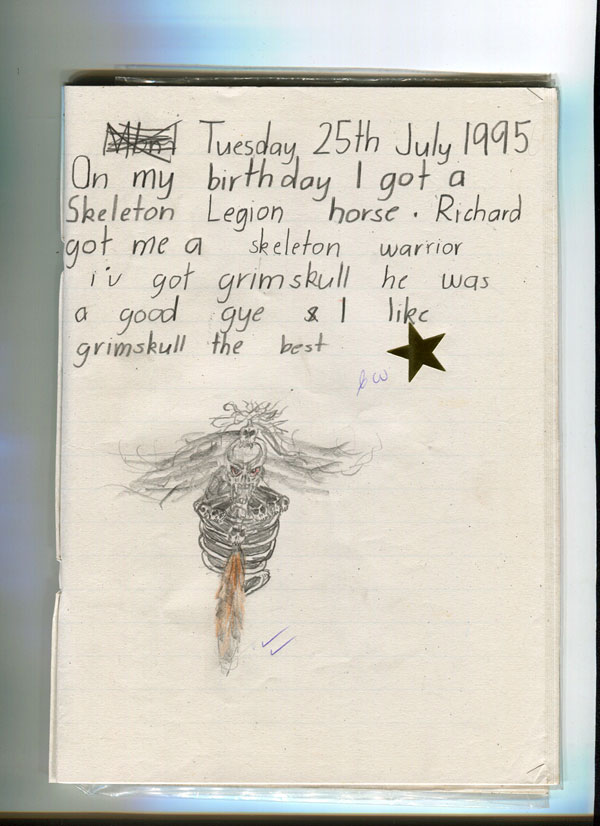 Tuesday 25th July 1995
On my birthday I got a
Skeleton Legion horse. Richard
got me a skeleton warrior
i'v got grimskull he was
a good gye & I like
grimskull the best